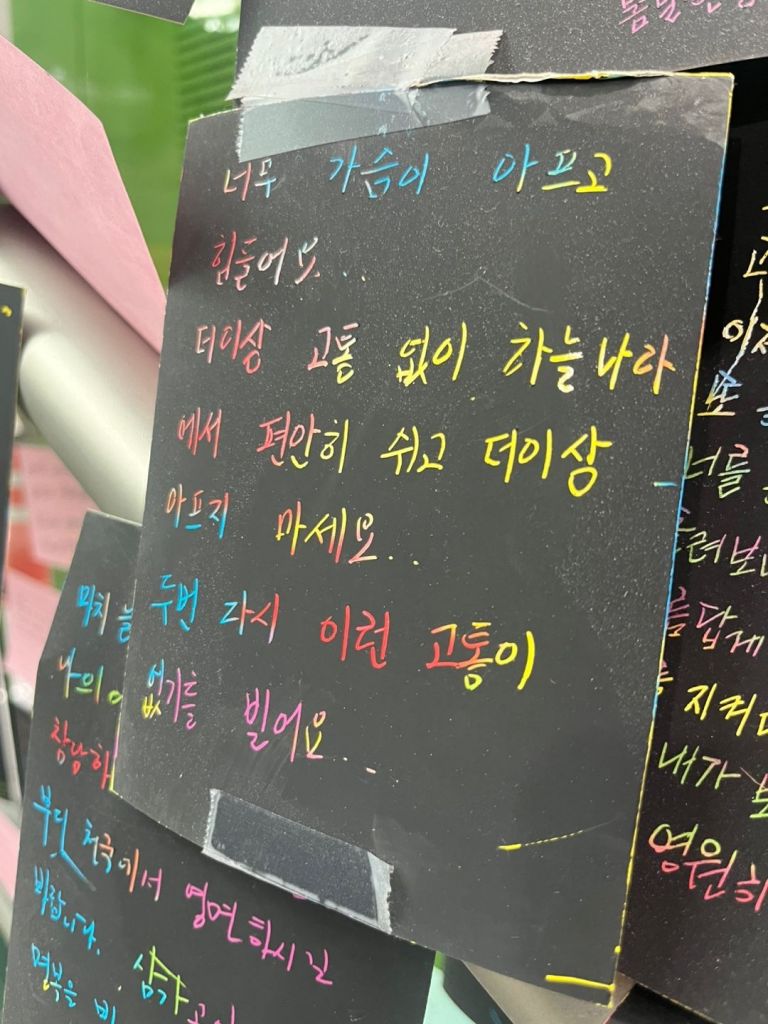 너무 가슴이 아프고
힘들어요...
더이상 고통 없이 하늘나라
에서 편안히 쉬고 더이상
아프지 마세요...
두번 다시 이런 고통이
없기를 빌어요...
나의
부디 천국에서 영면하시길
바랍니다. 삼가
명복을
이제
또
너를
지켜
내가
영원히